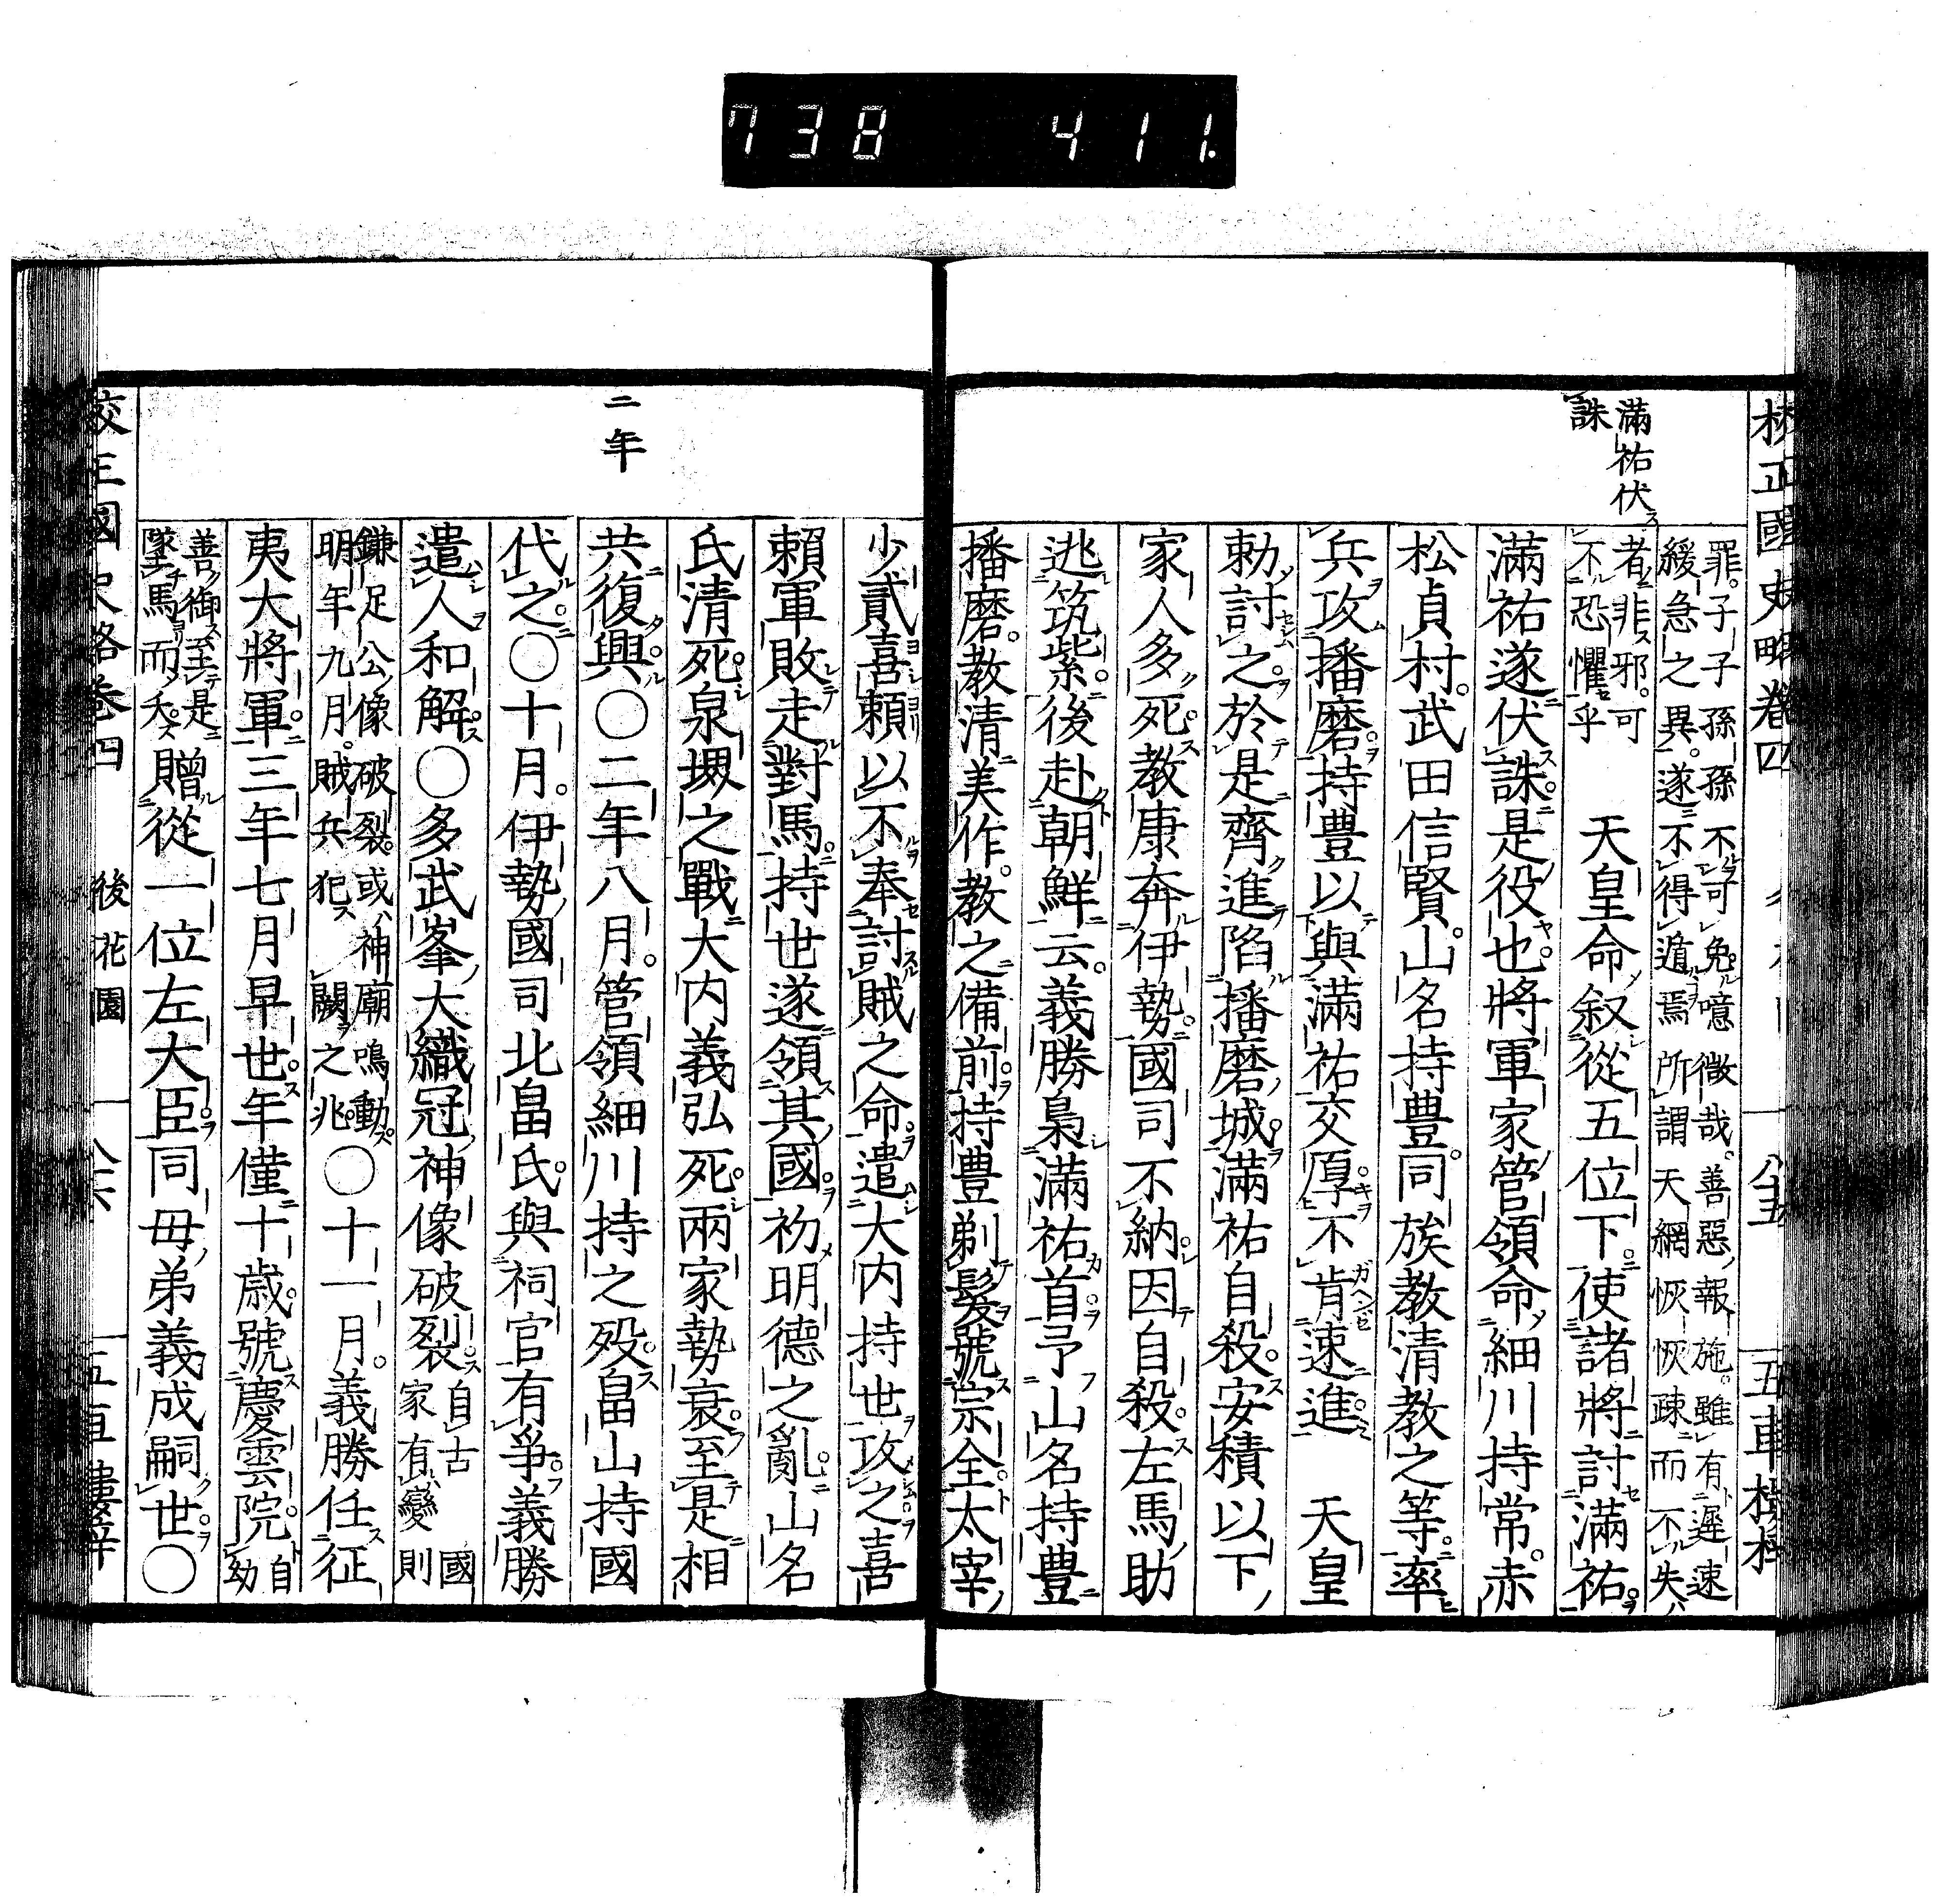 738 411.
校正國史略卷四
八十五
五車樓梓
滿祐伏
誅
罪子子孫孫不可免噫微哉善惡報施雖有遲速
緩急之異遂不得遁焉所謂天網恢恢疎而不失
者非邪可
不恐懼乎
天皇命叙從五位下使諸將討滿祐
滿祐遂伏誅是役也將軍家管領命細川持常赤
松貞村武田信賢山名持豊同族教清教之等率
兵攻播磨持豊以與滿祐交厚不肯速進 天皇
勅討之於是齊進陷播磨城滿祐自殺安積以下
家人多死教康奔伊勢國司不納因自殺左馬助
逃筑紫後赴朝鮮云義勝梟滿祐首予山名持豊
播磨教清美作教之備前持豊剃髮號宗全太宰
少貳喜賴以不奉討賊之命遣大内持世攻之喜
賴軍敗走對馬持世遂領其國初明德之亂山名
氏清死泉堺之戰大内義弘死兩家勢衰至是相
二年
共復興〇二年八月管領細川持之殁畠山持國
代之〇十月伊勢國司北畠氏與祠官有爭義勝
遣人和解〇多武峯大織冠神像破裂
自古國
家有變則
鎌足公像破裂或神廟鳴動
明年九月賊兵犯闕之兆
〇十一月義勝任征
夷大將軍三年七月早世年僅十歳號慶雲院
自幼
善御至是
墜馬而夭
贈從一位左大臣同母弟義成嗣世〇
校正國史略卷四
後花園
八十六
五車樓梓